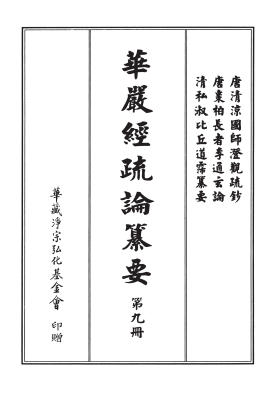 唐清涼國師澄觀疏鈔
唐棗柏長者李通玄論
清私淑比丘道霈纂要
華嚴經疏論纂要
第九冊
華藏淨宗弘化基金會 印贈